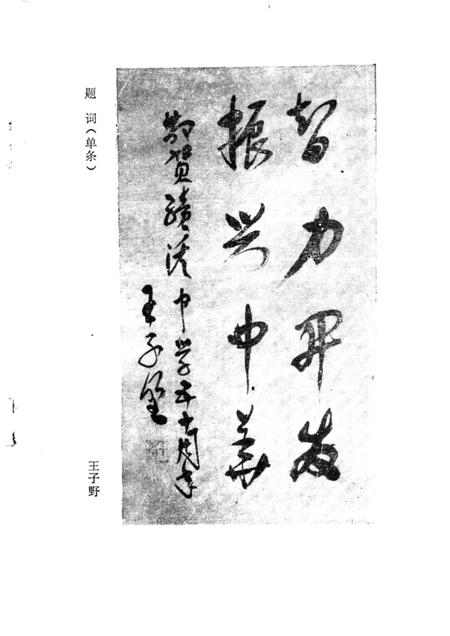 智力开发
振兴中华
敬贺绩溪中学五十周年
王子野
题词(单条)
王子野